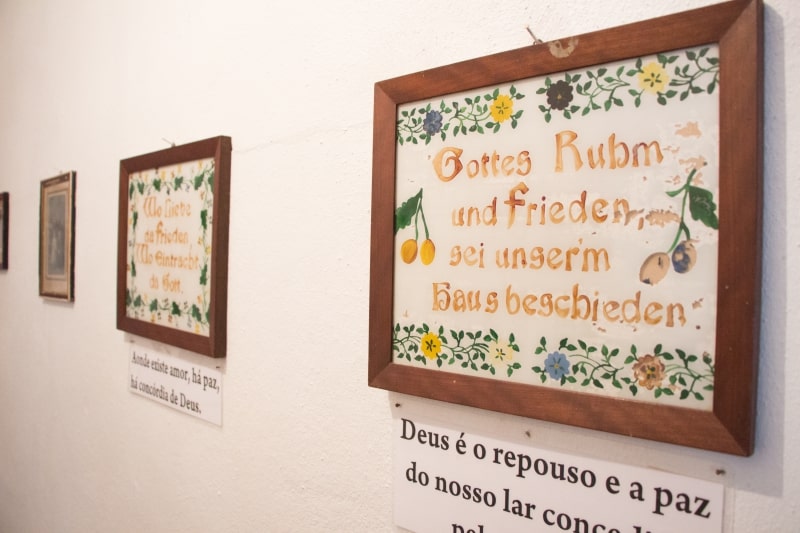 Wo Liebe
da Frieden,
Wo Eintracht
da Gott.
Aonde existe amor, há paz,
há concórdia de Deus.
Gottes Ruhm
und Frieden,
sei unser'm
Haus beschieden.
Deus é o repouso e a paz
do nosso lar